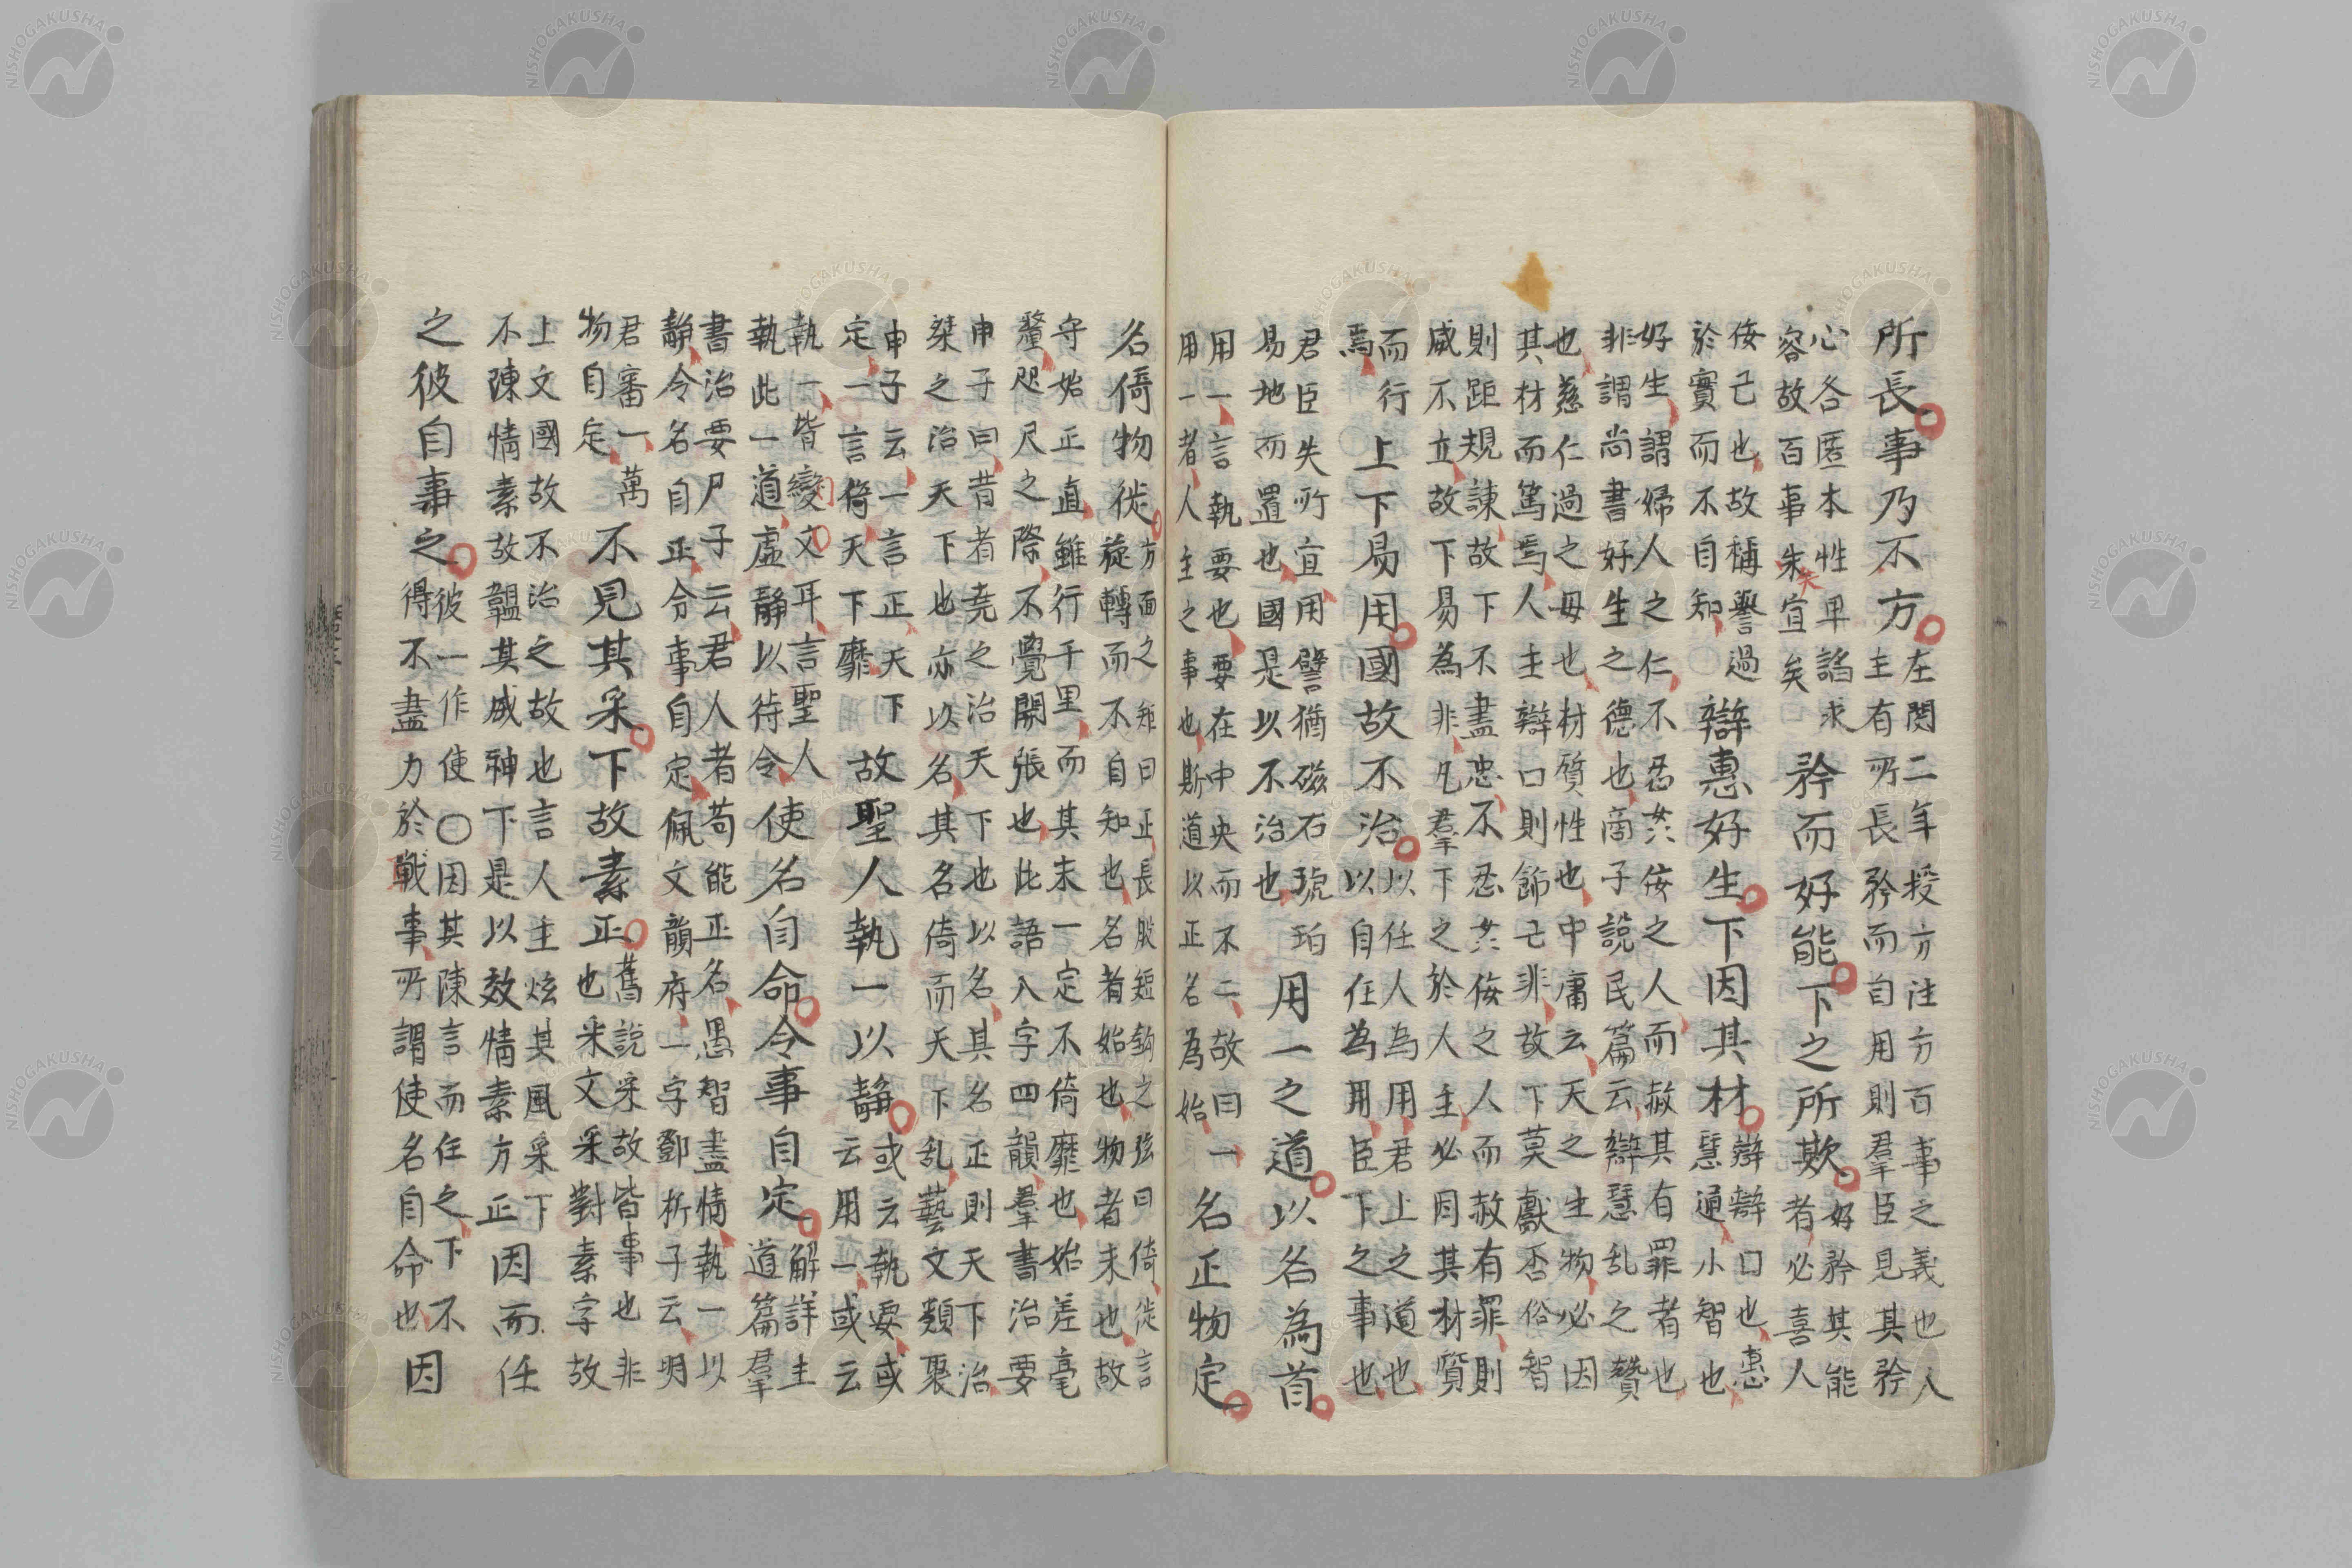 所長事乃不方
在閔二年授方注方百事之義也人
主有所長矜而自用則羣臣見其矜
心各匿本性卑諂求
容故百事朱宜矣
失
矜而好能下之所欺
好矜其能
者必喜人
佞己也故稱譽過
於實而不自知
辯惠好生下因其材
辯辯口也惠
慧通小智也
好生謂婦人之仁不忍奸佞之人而赦其有罪者也
非謂尚書好生之德也商子說民篇云辯慧乱之贊
也慈仁過之毋也材質性也中庸云天之生物必因
其材而篤焉人主辯口則飾亡非故下莫獻否俗智
則距規諫故下不盡忠不忍奸佞之人而赦有罪則
威不立故下易為非凡羣下之於人主必因其材質
而行
焉
上下易用國故不治
以任人為用君上之道也
以自任為用臣下之事也
君臣失所宜用譬猶磁石琥珀
易地而置也國是以不治也
用一之道以名為首
用一言執要也要在中央而不二故曰
用一者人主之事也斯道以正名為始
一名正物定
名倚物徙
方面之 曰正長股短鉤之弦曰倚徙言
旋轉而不自知也名者始也物者末也故
守始正直雖行千里而其末一定不倚靡也始差毫
釐咫尺之際不覺開張也此語入字四韻羣書治要
申子曰昔者堯之治天下也以名其名正則天下治
桀之治天下也亦以名其名倚而天下乱藝文類聚
申子云一言正天下
定一言倚天下靡
故聖人執一以静
或云執要或
云用一或云
執一皆變文耳言聖人
執此一道虛静以待令
使名自命令事自定
解詳主
道篇羣
書治要尸子云君人者苟能正名愚智盡情執一以
静令名自正分事自定佩文韻府一字鄧析子云明
君審一萬
物自定
不見其采下故素正
舊說采故皆事也非
也采文采對素字故
上文國故不治之故也言人主炫其風采下
不陳情素故韞其威神下是以效情素方正
因而任
之彼自事之
彼一作使〇因其陳言而任之下不
得不盡力於戰事所謂使名自命也
因